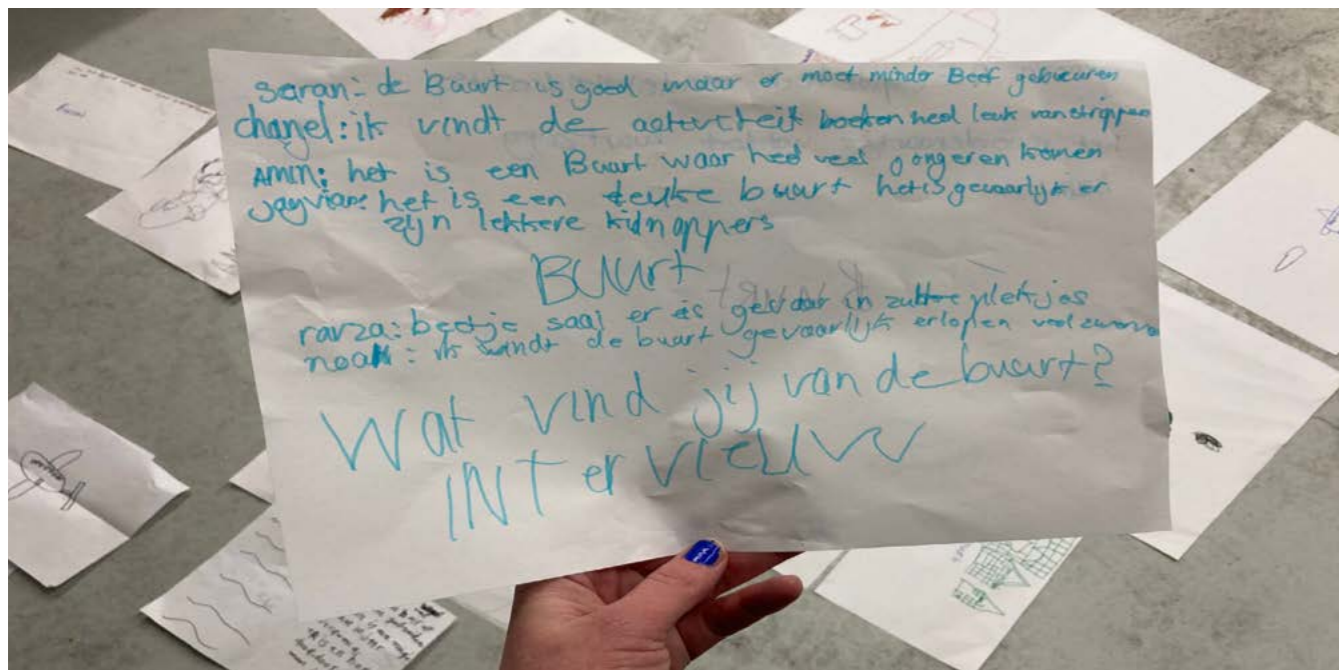 saran: de Buurt is goed maar er moet minder Beef gebeuren
chanel: ik vindt de boeken heel leuk van strippen
AMIN: het is een Buurt waar heel veel jongeren komen
Jayvian: het is een leuke buurt het is gevaarlijk er
zijn lekkere kidnappers
BUURT
raiza: beetje saai er is gevaar in zulke plekjes
noah: ik vindt de buurt gevaarlijk er lopen veel
Wat vind jij van de buurt?
INTervieuw